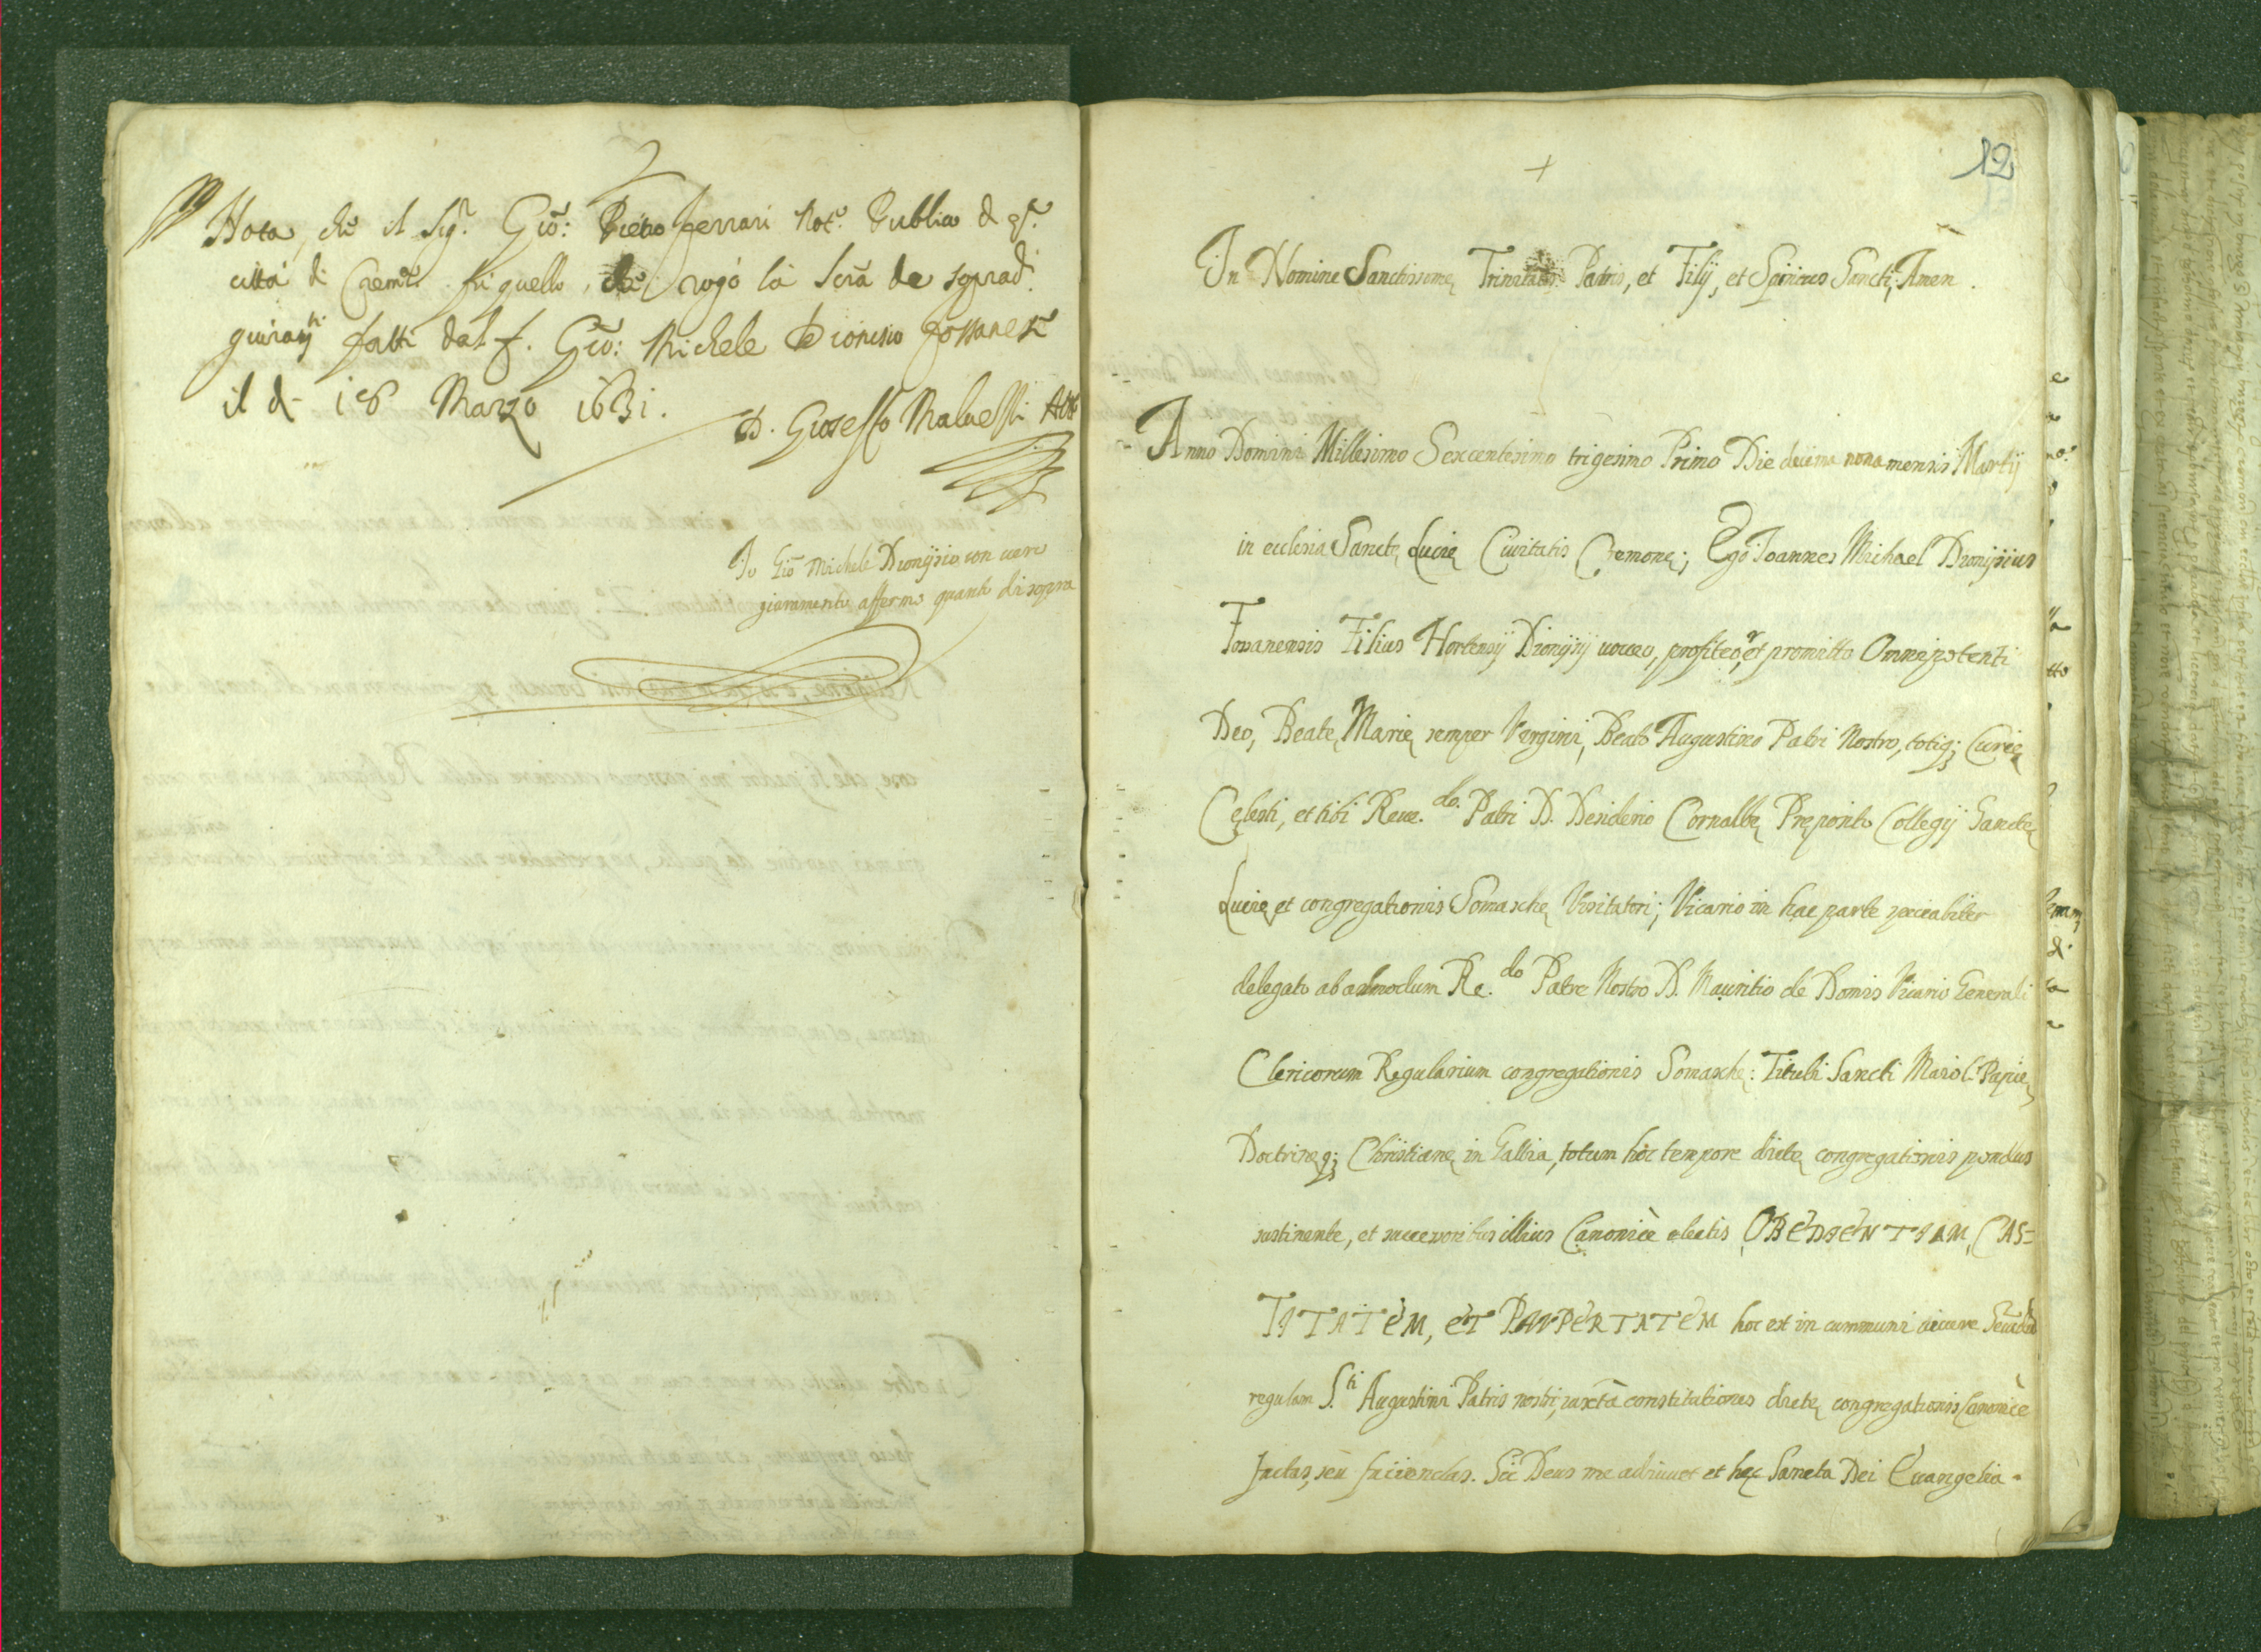 Nota, che il Sig.r Giō: Pietro Ferrari Not.o Publico d q.sta
città di Crem.a fù quello, che rogò la Scrā de soprad.i
giuram.ti fatti dal f. Giō: Michele Dionisio Fossanese
il dì 18 Marzo 1631.
D. Gioseffo Maluessi
Io Giō Michele Dionysio con uero
giuramento affermo quanto di sopra
+
12
In Nomine Sanctissimę Trinitatis Patris, et Filij, et Spiritus Sancti, Amen.
Anno Domini Millesimo Sexcentesimo trigesimo Primo Die decima nona mensis Martij
in ecclesia Sanctę Lucię Ciuitatis Cremonę; Ego Ioannes Michael Dionysius
Fossanensis Filius Hortensij Dionysij uoueo, profiteor, et promitto Omnipotenti
Deo, Beatę Marię semper Virgini, Beato Augustino Patri Nostro, totiq; Curię
Cęlesti, et tibi Reue.do Patri D. Desiderio Cornalbę Pręposito Collegij Sanctę
Lucię et congregationis Somaschę Visitatori; Vicario in hac parte
delegato ab admodum Re.do Patre Nostro D. Mauritio de Domis Vicario Generali
Clericorum Regularium congregationis Somaschę: Tituli Sancti Maioli Papię
Doctrinęq; Christianę in Gallia, totum hoc tempore dictę congregationis pondus
sustinente, et successoribus illius Canonicè electis, OBEDIENTIAM, CAS=
TITATEM, ET PAVPERTATEM hoc est in communi uiuere
regulam S.ti Augustini Patris nostri, iuxtà constitutiones dictę congregationis Canonicè
factas, seù faciendas. Sic Deus me adiuuet et hęc Sancta Dei Euangelia.